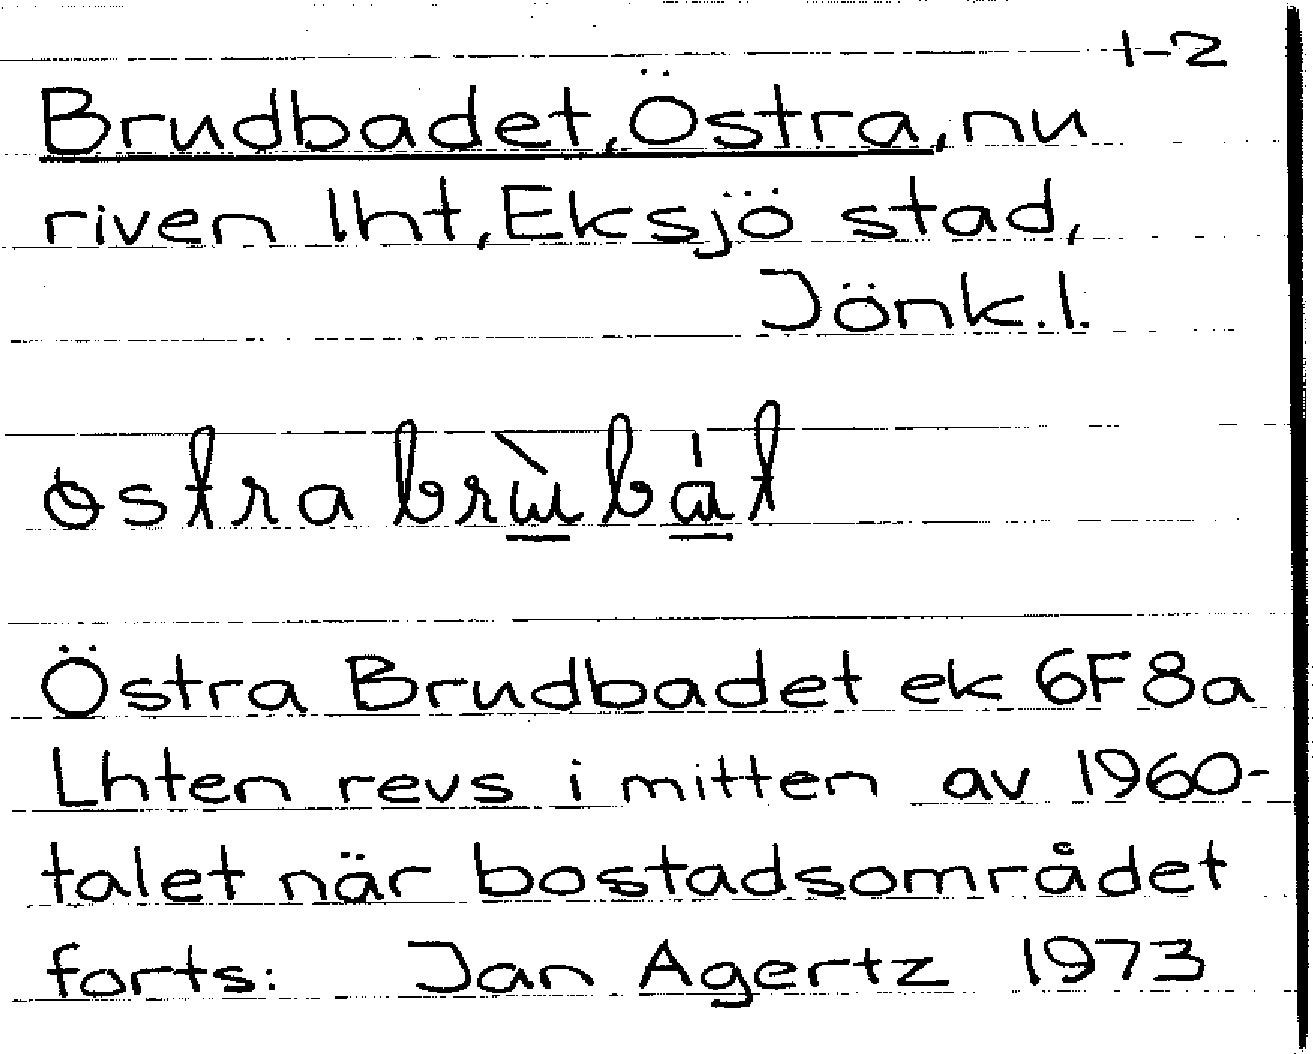 1-2
Brudbadet, Östra, nu
riven lht, Eksjö stad,
Jönk.l.
Östra Brudbadet ek 6F8a
Lhten revs i mitten av 1960-
talet när bostadsområdet
forts: Jan Agertz 1973